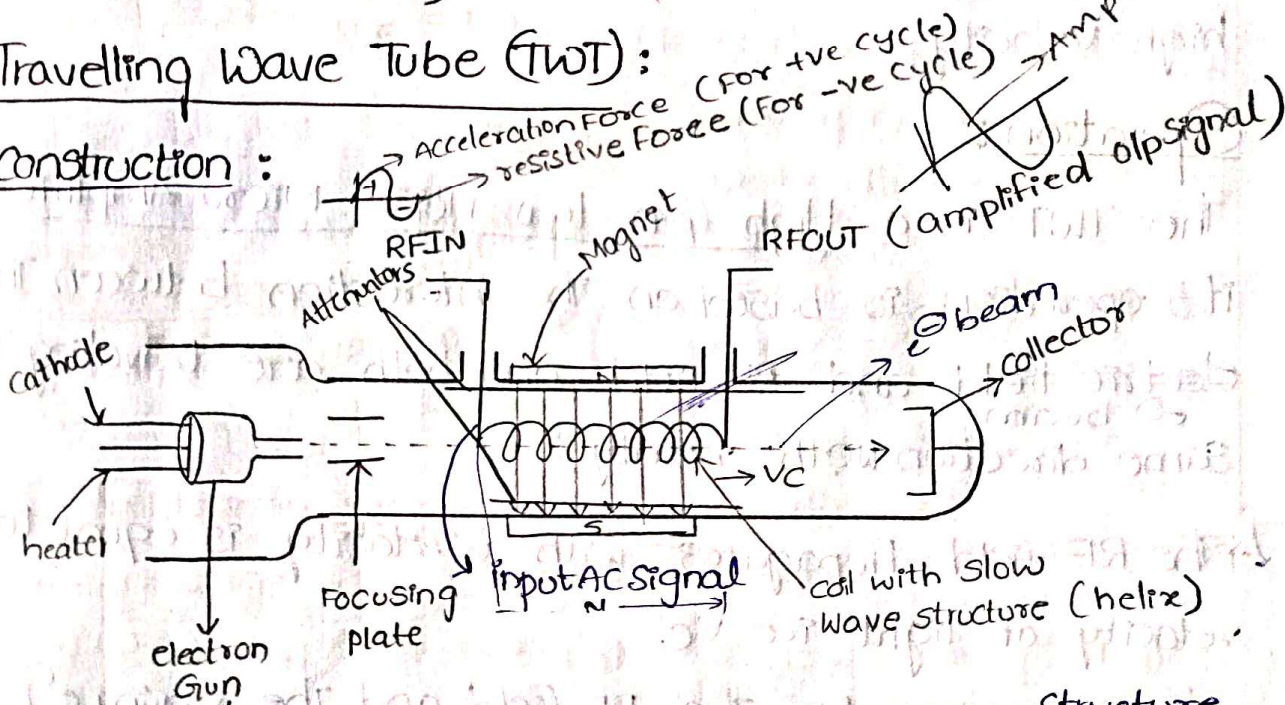 Travelling Wave Tube (TWT) :
Construction :
Acceleration Force (For +ve cycle)
resistive Force (For -ve cycle)
Amp
RFIN
RFOUT (amplified o/p signal)
Magnet
Attenuators
e⊖ beam
collector
cathode
N
VC
heater
S
Focusing
plate
input AC signal
N
coil with slow
wave structure (helix)
electron
Gun
Structure